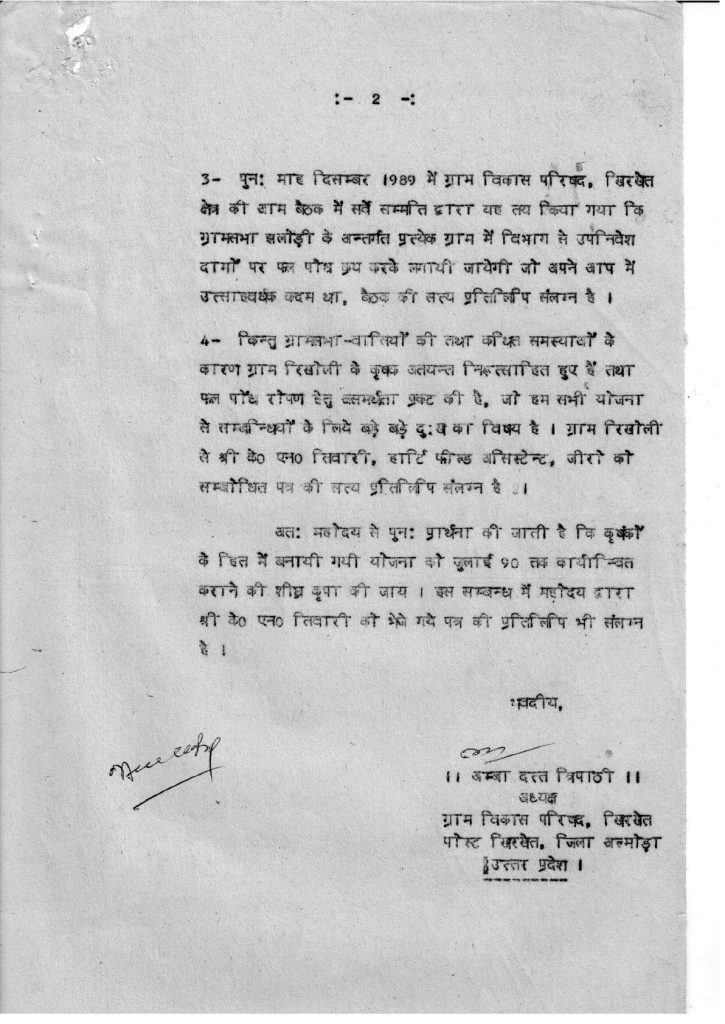 :- 2 -:
3- पुन: माह दिसम्बर 1989 में ग्राम विकास परिषद, खिरखेत
क्षेत्र की आम बैठक में सर्व सम्मति द्वारा यह तय किया गया कि
ग्रामसभा झलोड़ी के अन्तर्गत प्रत्येक ग्राम में विभाग से उपनिवेश
दागों पर फल पौध क्रय करके लगायी जायेगी जो अपने आप में
उत्साहवर्धक कदम था, बैठक की सत्य प्रतिलिपि संलग्न है ।
4- किन्तु ग्रामसभा-वासियों की तथा कथित समस्याओं के
कारण ग्राम रिखोली के कृषक अतयन्त निरूत्साहित हुए हैं तथा
फल पौध रोपण हेतु असमर्थता प्रकट की है, जो हम सभी योजना
से सम्बन्धियों के लिये बड़े बड़े दु:ख का विषय है । ग्राम रिखोली
से श्री के0 एन0 तिवारी, हार्टि फील्ड असिस्टेन्ट, जीरो को
सम्बोधित पत्र की सत्य प्रतिलिपि संलग्न है ।
अत: महोदय से पुन: प्रार्थना की जाती है कि कृषकों
के हित में बनायी गयी योजना को जुलाई 90 तक कार्यान्वित
कराने की शीघ्र कृपा की जाय । इस सम्बन्ध में महोदय द्वारा
श्री के0 एन0 तिवारी को भेजे गये पत्र की प्रतिलिपि भी संलग्न
है ।
भवदीय,
।। अम्बा दत्त त्रिपाठी ।।
अध्यक्ष
ग्राम विकास परिषद, खिरखेत
पोस्ट खिरखेत, जिला अल्मोड़ा
उत्तर प्रदेश ।